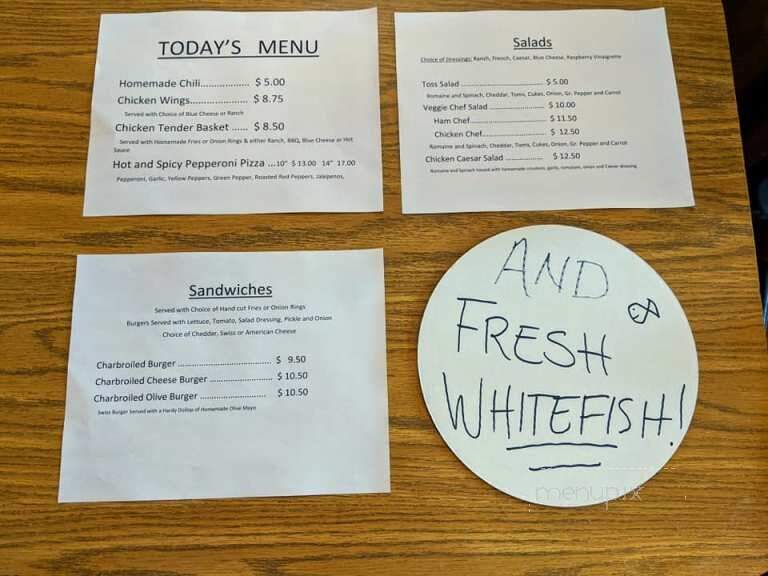 TODAY'S MENU
Homemade Chili................ $ 5.00
Chicken Wings................... $ 8.75
Served with Choice of Blue Cheese or Ranch
Chicken Tender Basket ...... $ 8.50
Served with Homemade Fries or Onion Rings & either Ranch, BBQ, Blue Cheese or Hot
Sauce
Hot and Spicy Pepperoni Pizza ...10" $ 13.00 14" 17.00
Pepperoni, Garlic, Yellow Peppers, Green Pepper, Roasted Red Peppers, Jalepenos,
Salads
Choice of Dressings: Ranch, French, Caesar, Blue Cheese, Raspberry Vinaigrette
Toss Salad ............................ $ 5.00
Romaine and Spinach, Cheddar, Toms, Cukes, Onion, Gr. Pepper and Carrot
Veggie Chef Salad ................... $ 10.00
Ham Chef.................... $ 11.50
Chicken Chef................ $ 12.50
Romaine and Spinach, Cheddar, Toms, Cukes, Onion, Gr. Pepper and Carrot
Chicken Caesar Salad .............. $ 12.50
Romaine and Spinach tossed with homemade croutons, garlic, romaine, onion and Caesar dressing
Sandwiches
Served with Choice of Hand cut Fries or Onion Rings
Burgers Served with Lettuce, Tomato, Salad Dressing, Pickle and Onion
Choice of Cheddar, Swiss or American Cheese
Charbroiled Burger ................................ $ 9.50
Charbroiled Cheese Burger ...................... $ 10.50
Charbroiled Olive Burger ....................... $ 10.50
Swiss Burger Served with a Hardy Dollop of Homemade Olive Mayo
AND
FRESH
WHITEFISH!
menupix